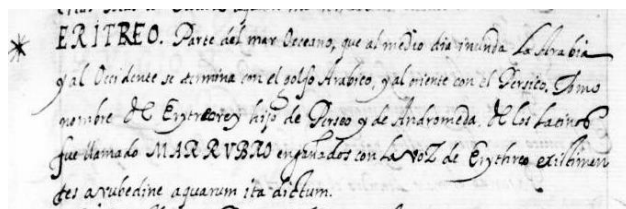 ERITREO. Parte del mar Occeano, que al medio dia inunda la Arabia
y al Occidente se termina con el golfo Arabico, y al oriente con el Persico. Tomo
nombre de Erytreo rey hijo de Perseo y de Andromeda. de los Latinos
fue llamado MAR RVBRO engañados con la voz de Erythreo existimen
tes a rubedine aquarum ita dictum.